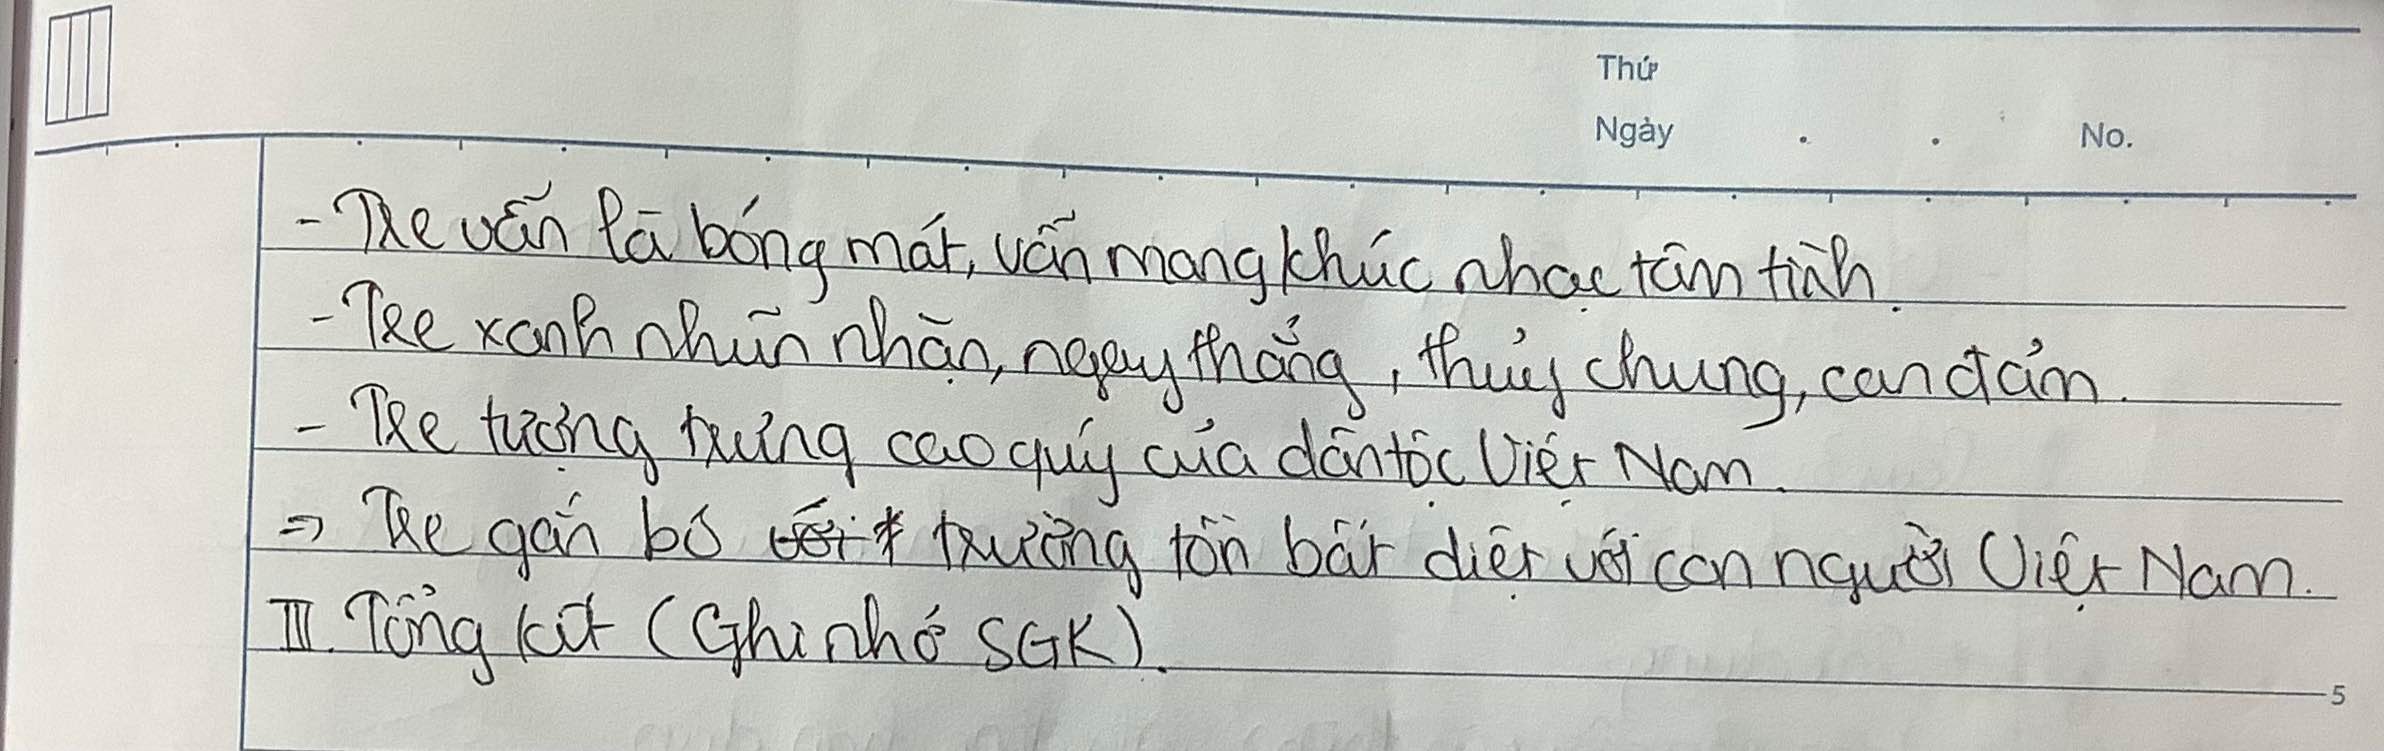 Thứ
Ngày . . No.
- Tre vẫn là bóng mát, vẫn mang khúc nhạc tâm tình.
- Tre xanh nhũn nhặn, ngay thẳng, thuỷ chung, can đảm.
- Tre tượng trưng cao quý của dân tộc Việt Nam.
⇒ Tre gắn bó với t trường tồn bất diệt với con người Việt Nam.
III. Tổng kết (Ghi nhớ SGK).
5